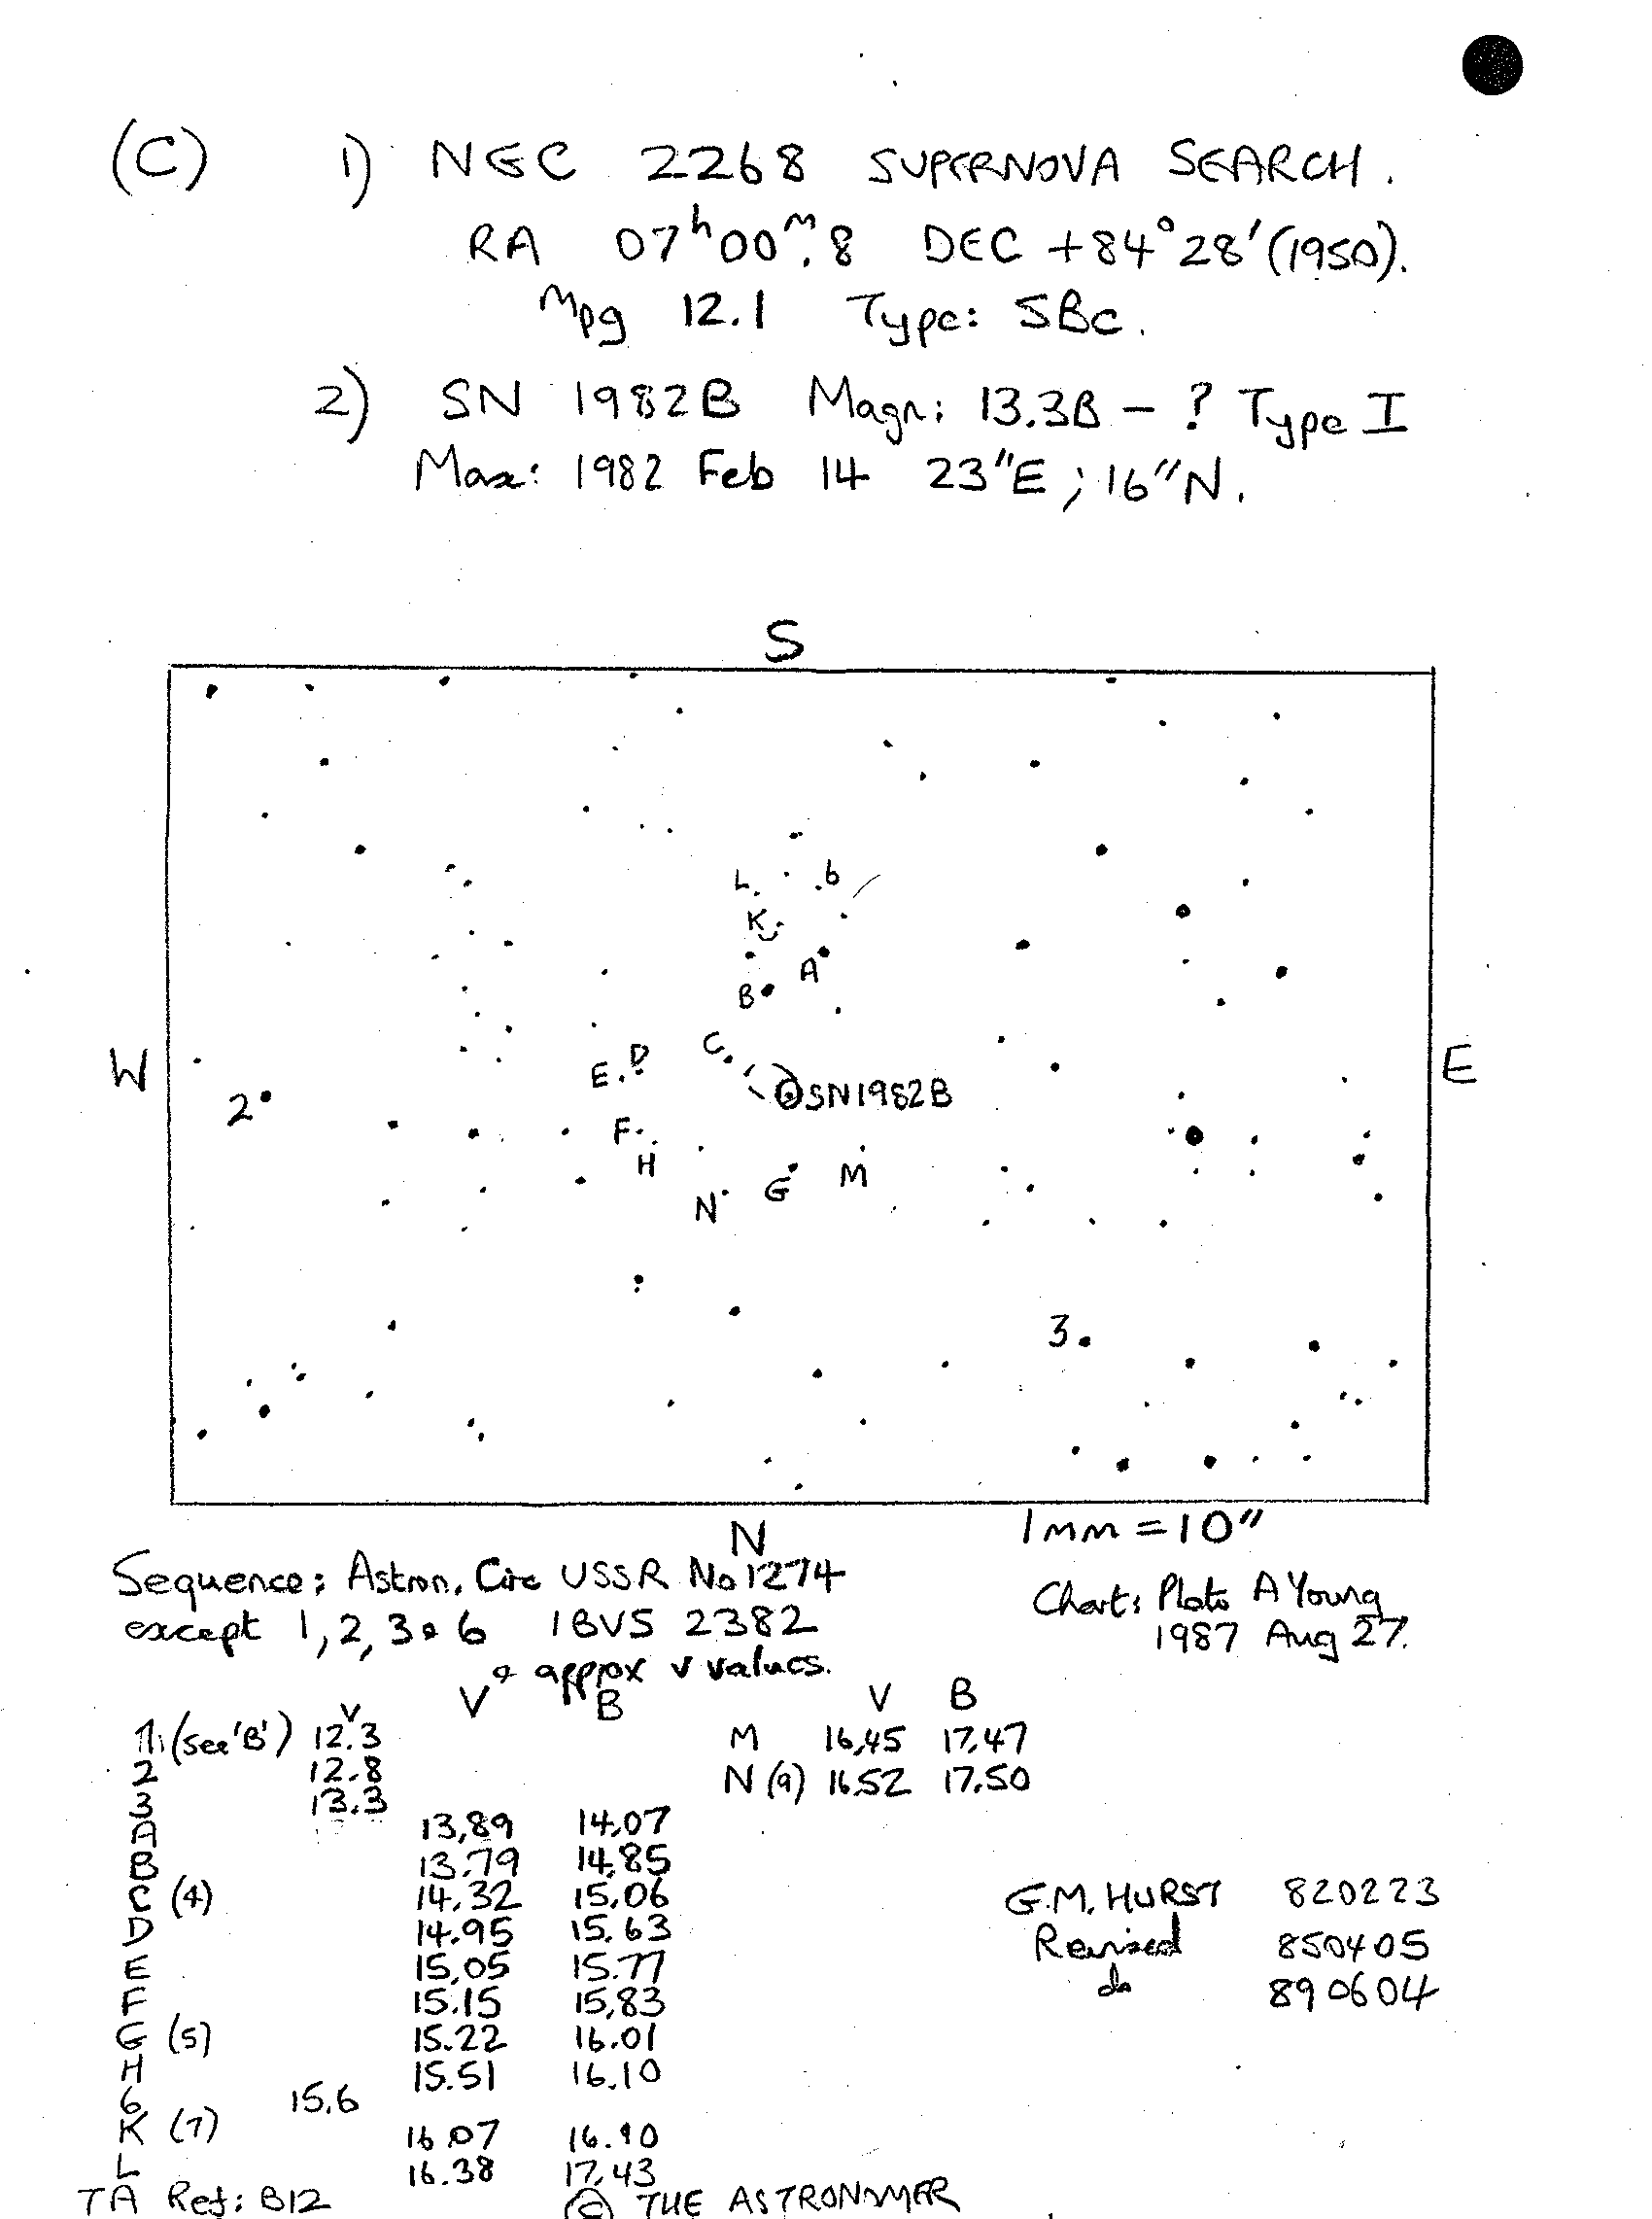 (C) 1) NGC 2268 SUPERNOVA SEARCH.
RA 07ʰ00ᵐ.8 DEC +84°28′(1950).
mpg 12.1 Type: SBc.
2) SN 1982B Magn: 13.3B – ? Type I
Max: 1982 Feb 14 23″E ; 16″N.
S
L 6
K
A
B
C
W E
D
E
2 SN1982B
F
H
G M
N
3
N
1mm = 10″
Sequence: Astron. Circ USSR No 1274
except 1, 2, 3 & 6 IBVS 2382
& approx v values.
Chart: Photo A Young
1987 Aug 27.
v V B
1 (see 'B') 12.3
2 12.8
3 13.3
A 13.89 14.07
B 13.79 14.85
C (4) 14.32 15.06
D 14.95 15.63
E 15.05 15.77
F 15.15 15.83
G (5) 15.22 16.01
H 15.51 16.10
6 15.6
K (7) 16.07 16.90
L 16.38 17.43
V B
M 16.45 17.47
N (9) 16.52 17.50
G.M. HURST 820223
Revised 850405
do 890604
TA Ref: B12 © THE ASTRONOMER